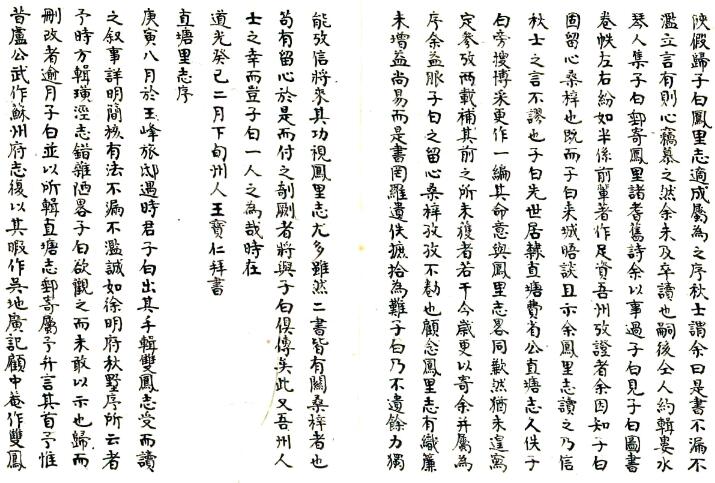 陝假歸子白鳳里志適成屬為之序秋士謂余曰是書不漏不
濫立言有則心竊慕之然余未及卒讀也嗣後仝人約輯婁水
琴人集子白郵寄鳳里諸耆舊詩余以事過子白見子白圖書
卷帙左右紛如半係前輩著作足資吾州攷證者余因知子白
固留心桑梓也既而子白来城晤談且示余鳳里志讀之乃信
秋士之言不謬也子白先世居隸直塘費省公直塘志久佚子
白旁搜博采更作一編其命意與鳳里志畧同歉然猶未遑寫
定參攷兩載補其前之所未獲者若干今歲更以寄余并屬為
序余益服子白之留心桑梓孜孜不勌也顧念鳳里志有織簾
未增益尚易而是書罔羅遺佚摭拾為難子白乃不遺餘力獨
能攷信將来其功視鳳里志尤多雖然二書皆有關桑梓者也
苟有留心於是而付之剞劂者將與子白俱傳矣此又吾州人
士之幸而豈子白一人之為哉時在
道光癸巳二月下旬州人王寶仁拜書
直塘里志序
庚寅八月於玉峰旅邸遇時君子白出其手輯雙鳳志受而讀
之叙事詳明簡核有法不漏不濫誠如徐明府秋墅序所云者
予時方輯璜涇志錯雜陋畧子白欲觀之而未敢以示也歸而
刪改者逾月子白並以所輯直塘志郵寄屬予弁言其首予惟
昔盧公武作蘇州府志復以其暇作吳地廣記顧中菴作雙鳳